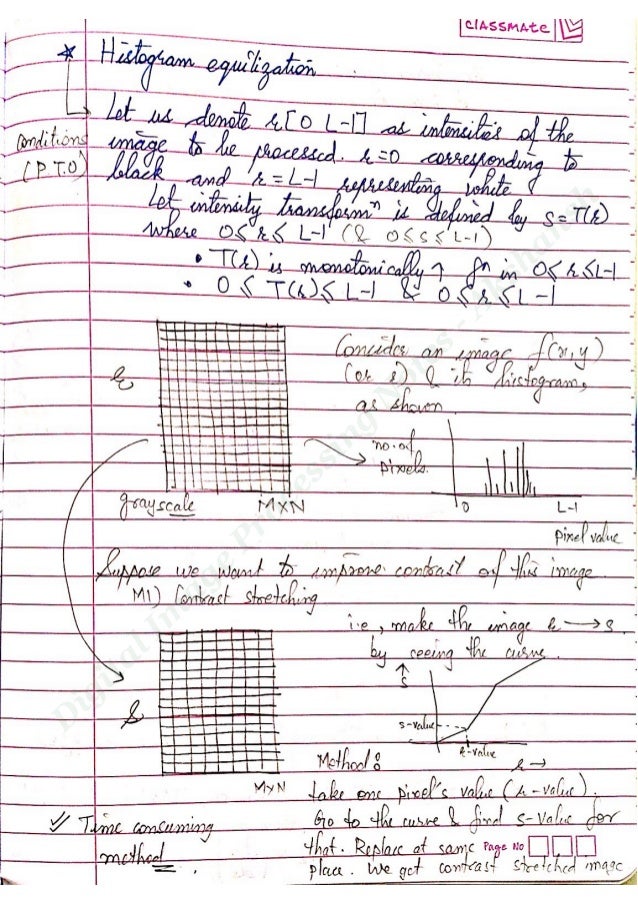 classmate
* Histogram equilization
Let us denote r[0 L-1] as intensities of the
conditions
image to be processed. r=0 corresponding to
(P.T.O)
black and r=L-1 representing white &
Let intensity transformⁿ is defined by s=T(r)
where 0≤r≤L-1 (& 0≤s≤L-1)
• T(r) is monotonically ↑ fⁿ in 0≤r≤L-1
• 0≤T(r)≤L-1 & 0≤r≤L-1
Consider an image f(x,y)
(or r) & its histogram,
as shown
r
no. of
pixels.
0 L-1
grayscale MXN
pixel value
Suppose we want to improve contrast of this image
M1) Contrast stretching
i.e, make the image r → s
by seeing the curve.
s
s
s-value
r-value
r→
Method:
MXN
take one pixel's value (r-value).
Time consuming
method
Go to the curve & find s-value for
that. Replace at same
Page No
place. We get contrast stretched image
Digital Image Processing Notes - Akshansh